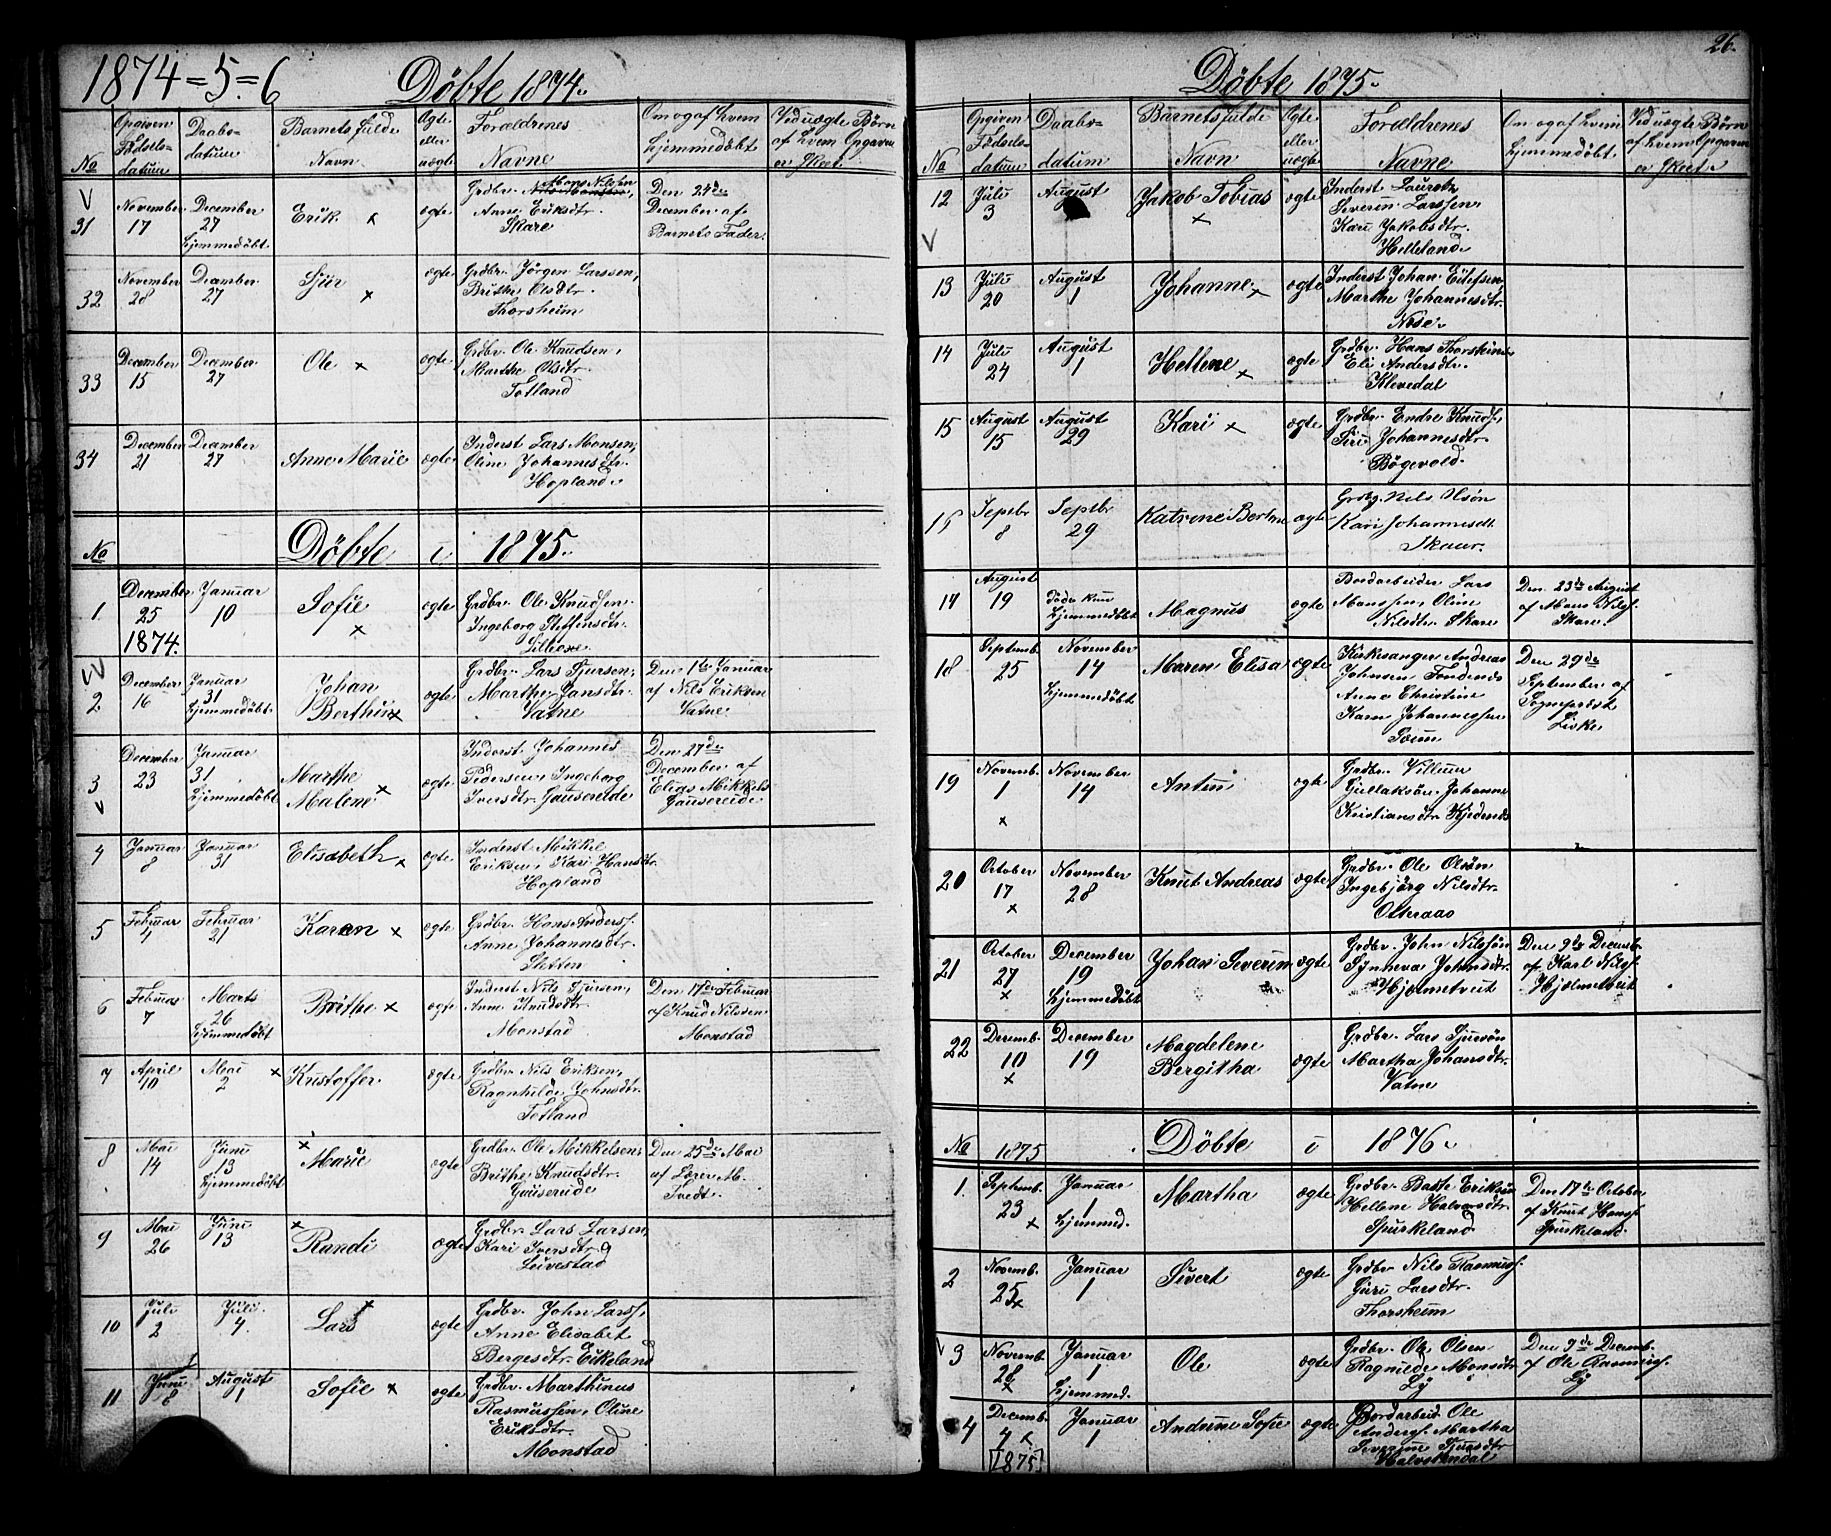 1874=5=6
Döbte 1874.
No
Opgiven Födsels-datum
Daabs-datum
Barnets fulde Navn
Ægte eller uægte
Forældrenes Navne
Om og af hvem hjemmedöbt
Ved uægte Börn af hvem Opgaven er skeet
31
November 17
December 27 hjemmedöbt
Erik x
ægte
Grdbr. Mons Nilsen, Anne Eriksdtr. Skare
Den 24de December af Barnets Fader.
32
November 28
December 27
Sjur x
ægte
Grdbr. Jörgen Larssen, Brithe Olsdtr. Thorsheim
33
December 15
December 27
Ole x
ægte
Grdbr. Ole Knudsen, Marthe Olsdtr. Totland
34
December 21
December 27
Anne Marie
ægte
Inderst Lars Monsen, Oline Johannesdtr. Hopland.
No
Döbte i 1875.
1.
December 25 1874.
Januar 10
Sofie x
ægte
Grdbr. Ole Knudsen. Ingeborg Steffensdtr.
2
December 16
Januar 31 hjemmedöbt
Johan Berthin x
ægte
Grdbr. Lars Sjursen, Marthe Hansdtr. Vatne
Den 1te Januar af Nils Eriksen Vatne
3
December 23
Januar 31 hjemmedöbt
Marthe Malene x
ægte
Inderst Johannes Pedersen, Ingeborg Iversdtr. Gausereide
Den 27de December af Elias Mikkels. Gausereide
4
Januar 8
Januar 31
Elisabeth x
ægte
Inderst Mikkel Eriksen, Kari Hansdtr. Hopland
5
Februar 4
Februar 21
Karen x
ægte
Grdbr. Hans Anders. Anne Johannesdtr. Sletten
6
Februar 7
Marts 26 hjemmedöbt
Brithe x
ægte
Inderst Nils Sjursen, Anne Knudsdtr. Monstad
Den 17de Februar af Knud Nilssen Monstad
7
April 10
Mai 2
x Kristoffer
ægte
Grdbr. Nils Eriksen, Ragnhilde Johnsdtr. Totland
8
Mai 14
Juni 13 hjemmedöbt
x Marie
ægte
Grdbr. Ole Mikkelsen, Brithe Knudsdtr. Gausereide
Den 25de Mai af Lærer M. Tvedt.
9
Mai 26
Juni 13
x Randi
ægte
Grdbr. Lars Larsen, Kari Iversdtr. Leivestad
10
Juli 2
Juli 4.
Lars x
ægte
Grdbr. John Larss, Anne Elisabet Bergesdtr. Eikeland
11
Juni 8
August 1
Sofie x
ægte
Grdbr. Marthinus Rasmussen, Oline Eriksdtr. Monstad
26.
Döbte 1875.
No
Opgiven Födsels-datum
Daabs-datum
Barnets fulde Navn
Ægte eller uægte
Forældrenes Navne
Om og af hvem hjemmedöbt
Ved uægte Börn af hvem Opgaven er skeet.
12
Juli 3
August
Jakob Tobias x
ægte
Inderst Laurits Severin Larssen, Kari Jakobsdtr. Helleland
13
Juli 20
August 1
Johanne x
ægte
Inderst Johan Eilefsen Marthe Johannesdtr. Nese.
14
Juli 24
August 1
Hellene x
ægte
Grdbr. Hans Eli Andersdtr. Klevedal
15
August 15
August 29
Kari x
ægte
Grdbr. Endre Knuds, Siri Johannesdtr. Bögevold.
16
Septbr 8
Septbr 29
Katrine Bertine
ægte
Nils Kari Johannesdt. Skaar.
14
August 19
döde kun hjemmedöbt
Magnus
ægte
Bordarbeider Lars Monssen, Oline Nilsdtr. Skare
Den 23de August af Mons Nilss. Skare.
18
Septemb. 25
November 14 hjemmedöbt
Maren Elisa
ægte
Kirkesanger Andreas Johnsen Anna Christine Karn Johannessen
Den 29de September af Sogneprest
19
Novemb. 1 x
November 14
Anton
ægte
Grdbr. Villum Gullaksön. Johanne Kristiansdtr.
20
October 17 x
November 28
Knut Andreas
ægte
Grdbr. Ole Olsön Ingebjörg Nilsdtr. Otteraas
21
October 27 x
December 19 hjemmedöbt
Johan Severin
ægte
Grdbr. John Nilssön Synneva Johnsdtr. Hjelmetveit
Den 9de Decemb. af Karl Nilss. Hjelmetveit
22
Decemb. 10 x
December 19
Magdelene Bergitha
ægte
Grdbr. Lars Sjursön Martha Johansdtr. Vatne
No 1875
Döbte i 1876.
1.
Septemb. 23 x
Januar 1 hjemmed.
Martha
ægte
Grdbr. Baste Eriksön Hellene Halvorsdtr. Spurkeland
Den 17de October af Knut Hanss. Spurkeland.
2
Novemb. 25 x
Januar 1
Sivert
ægte
Grdbr. Nils Rasmuss. Guri Larsdtr. Thorsheim
3
Novemb. 28 x
Januar 1 hjemmed.
Ole
ægte
Grdbr. Ole Olsen Ragnilde Monsdtr. Ly
Den 9de Decemb. af Ole Rasmuss. Ly
4
Decemb. 4 x [1875]
Januar 1
Andrine Sofie
ægte
Bordarbeid. Ole Anders. Martha Severine Sjursdtr.